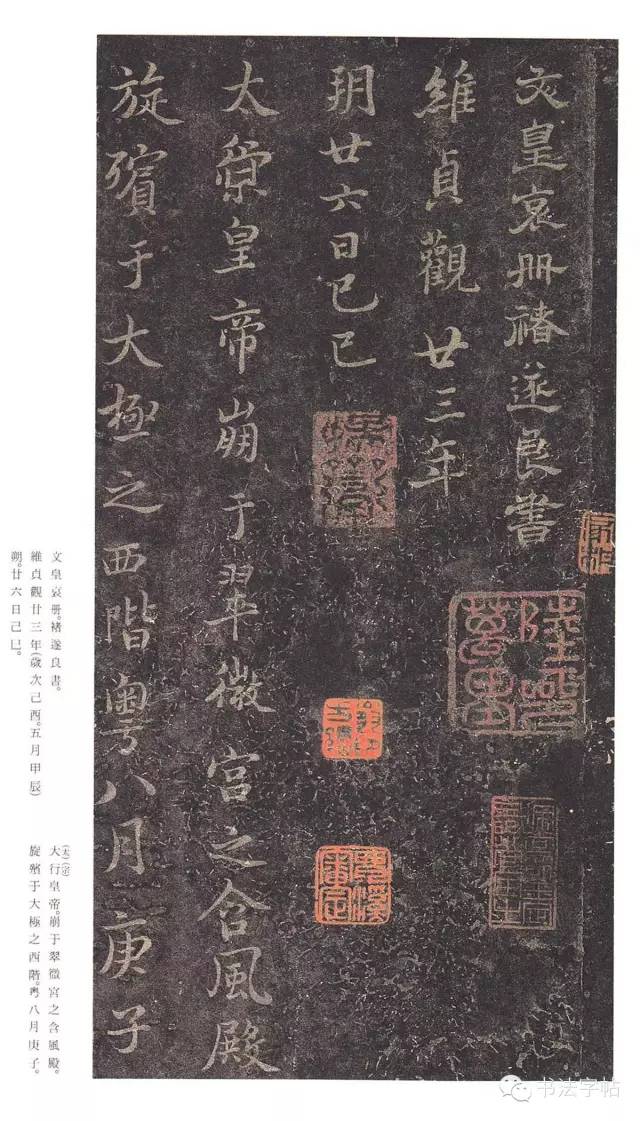 文皇哀册褚遂良書
維貞觀廿三年
朔廿六日己巳
太宗皇帝崩于翠微宮之含風殿
旋殯于大極之西階粵八月庚子
文皇哀册。褚遂良書。
維貞觀廿三年(歲次己酉。五月甲辰)
朔。廿六日己巳。
(太)(宗)
大行皇帝。崩于翠微宮之含風殿。
旋殯于大極之西階。粵八月庚子。
书法字帖